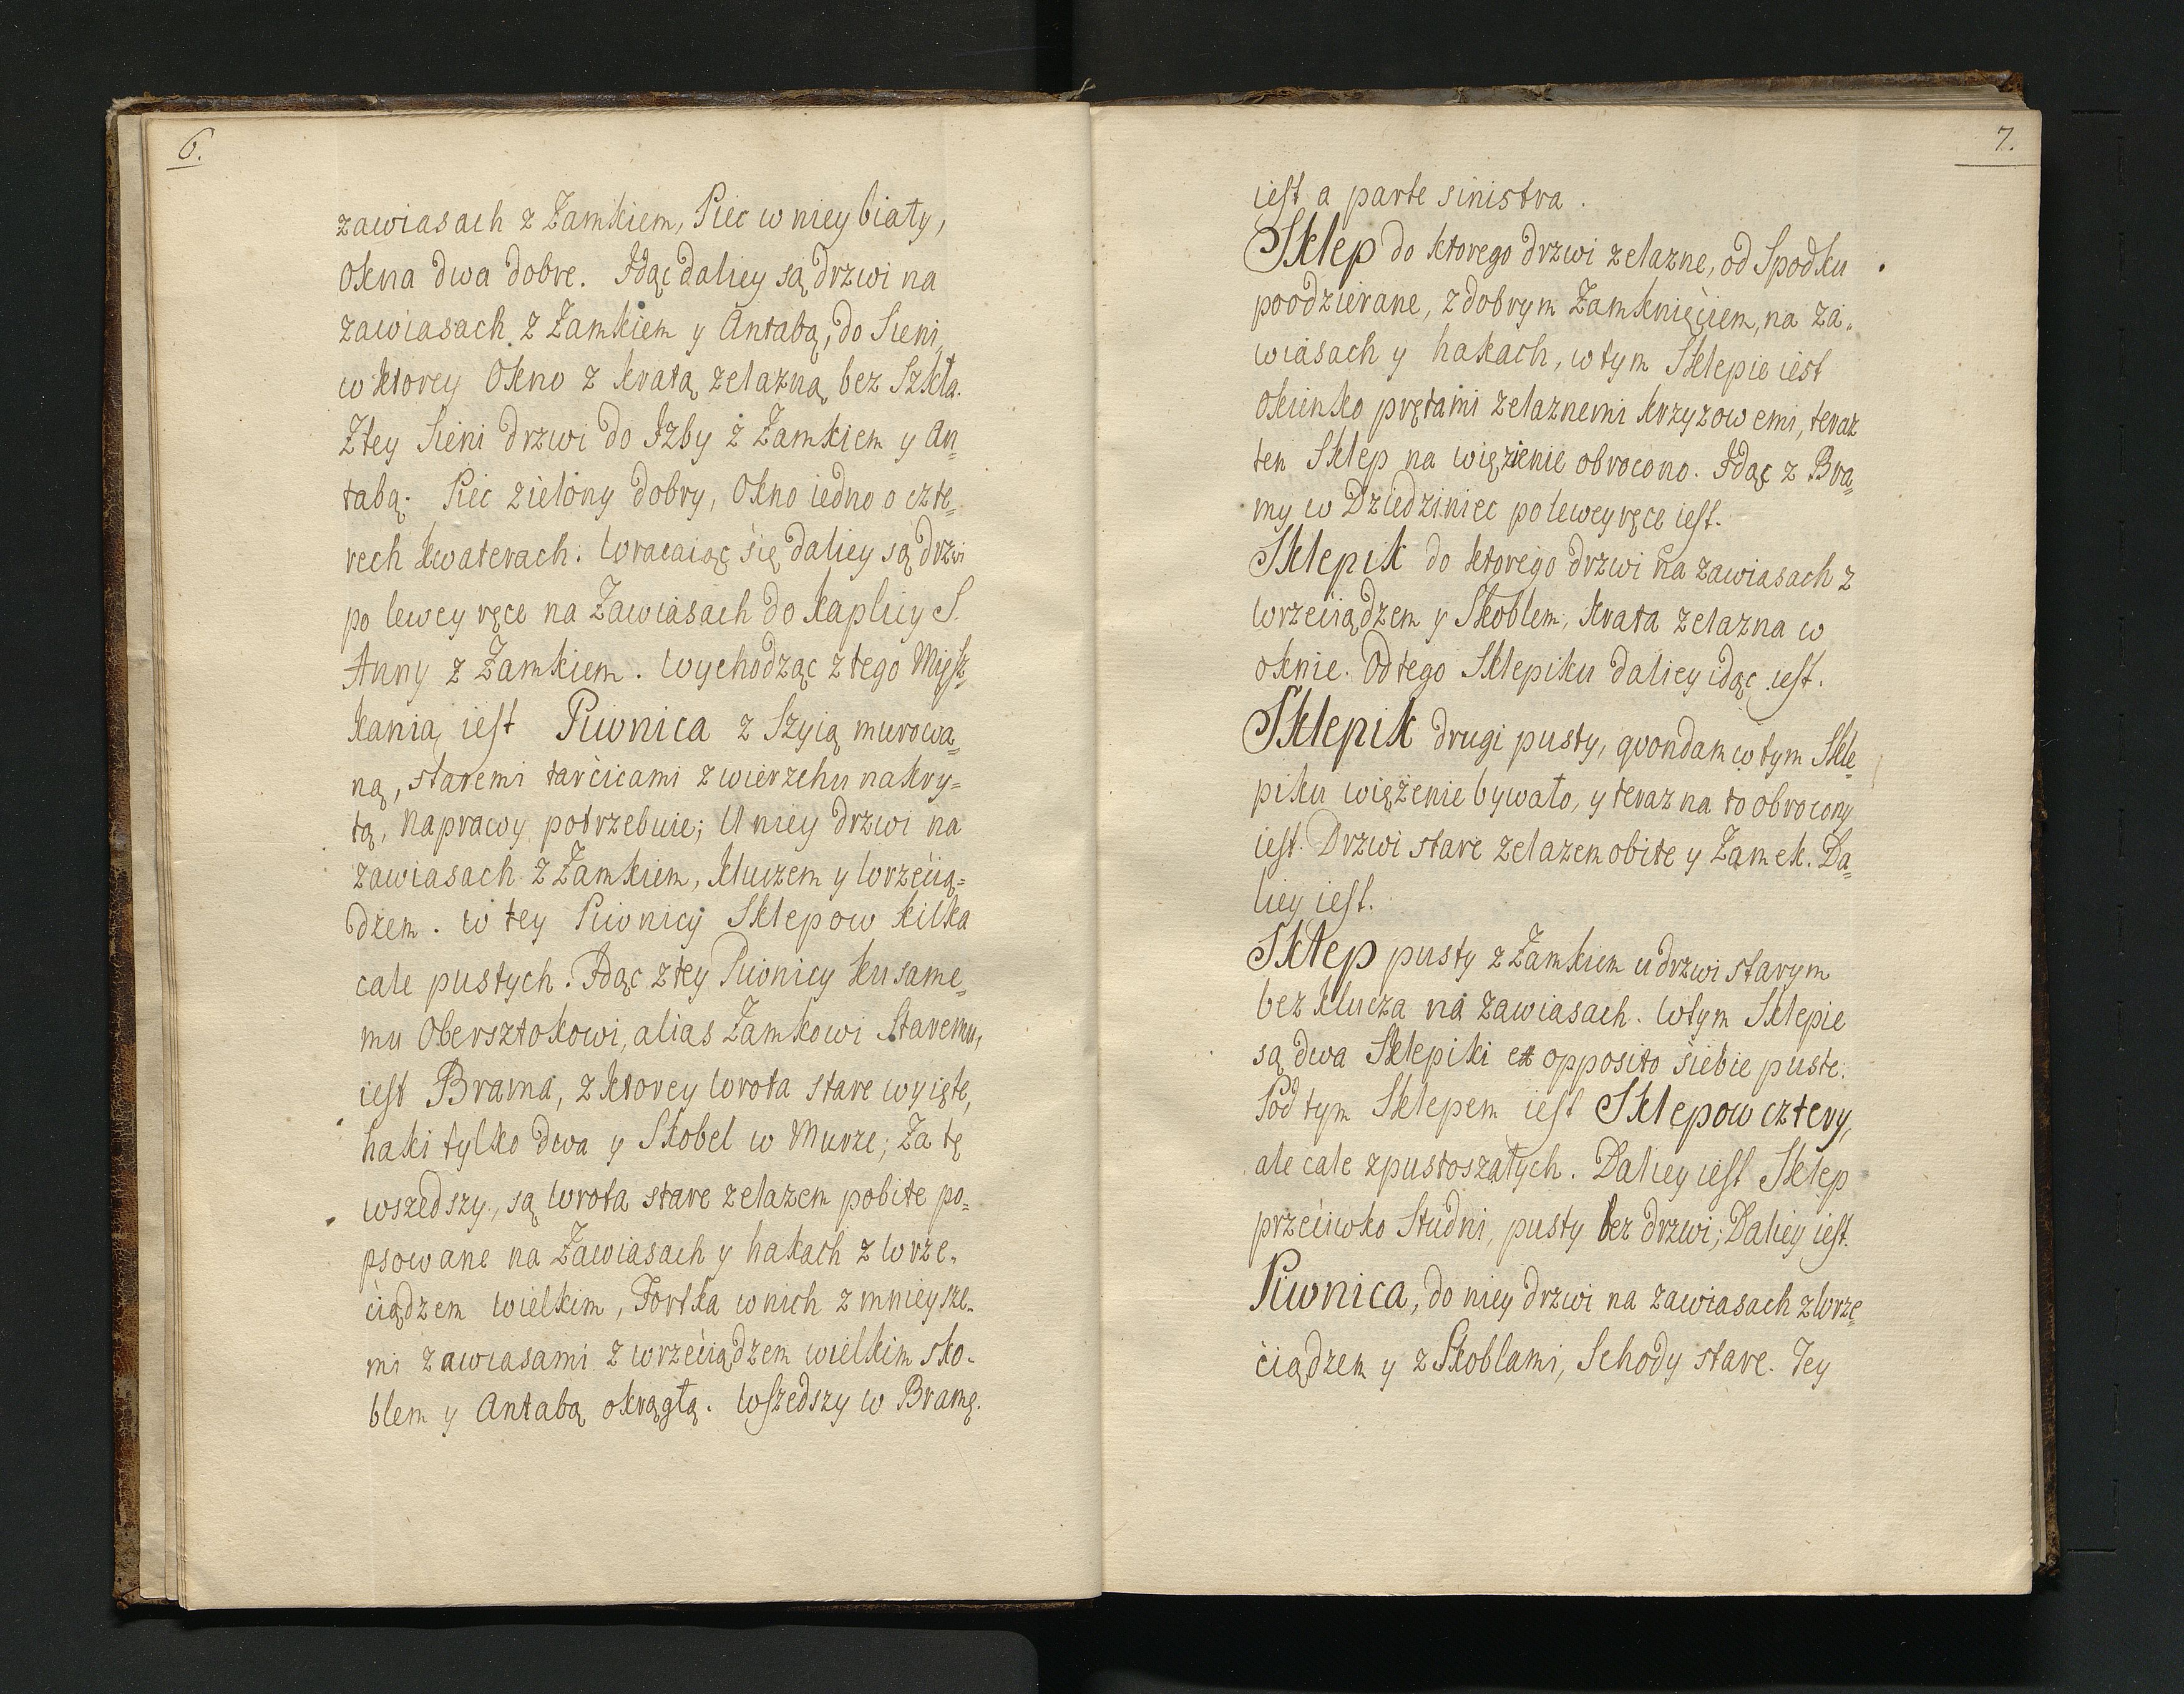 6.
zawiasach z Zamkiem, Piec w niey biały,
Okna dwa dobre. Idąc daliey są drzwi na
zawiasach z Zamkiem y Antabą, do Sieni,
w ktorey Okno z kratą zelazną, bez Szkła.
Z tey Sieni drzwi do Izby z Zamkiem y An=
tabą. Piec zielony dobry, Okno iedno o czte=
rech kwaterach. Wracaiąc się daliey są drzwi
po lewey ręce na Zawiasach do Kaplicy S.
Anny z Zamkiem. Wychodząc z tego Miesz=
kania, iest Piwnica z Szyią murowa=
ną, staremi tarcicami z wierzchu nakry=
tą, naprawy potrzebuie; U niey drzwi na
zawiasach z Zamkiem, kluczem y Wrzecią=
dzem. w tey Piwnicy Sklepow kilka
cale pustych. Idąc z tey Piwnicy ku same=
mu Obersztokowi, alias Zamkowi Staremu,
iest Brama, z ktorey Wrota stare wyięte,
haki tylko dwa y Skobel w Murze; Za tę
wszedszy, są Wrota stare zelazem pobite po=
psowane na Zawiasach y hakach z Wrze=
ciądzem wielkim, Fortka w nich z mnieysze=
mi zawiasami z wrzeciądzem wielkim sko=
blem y Antabą okrągłą. Wszedszy w Bramę.
7.
iest a parte sinistra.
Sklep do ktorego drzwi zelazne, od Spodku
poodzierane, z dobrym Zamknięciem, na za=
wiasach y hakach, w tym Sklepie iest
Okienko prętami zelaznemi krzyzowemi, teraz
ten Sklep na więzienie obrocono. Idąc z Bra=
my w Dziedziniec po lewey ręce iest.
Sklepik do ktorego drzwi na zawiasach z
Wrzeciądzem y Skoblem, krata zelazna w
oknie. Od tego Sklepiku daliey idąc iest.
Sklepik drugi pusty, qvondam w tym Skle=
piku więzienie bywało, y teraz na to obrocony
iest. Drzwi stare zelazem obite y Zamek. Da=
liey iest.
Sklep pusty z Zamkiem u drzwi starym
bez klucza na zawiasach. W tym Sklepie
są dwa Sklepiki ex opposito siebie puste.
Pod tym Sklepem iest Sklepow cztery,
ale cale zpustoszałych. Daliey iest Sklep
przeciwko Studni, pusty bez drzwi; Daliey iest.
Piwnica, do niey drzwi na zawiasach z Wrze=
ciądzem y z Skoblami, Schody stare. Tey